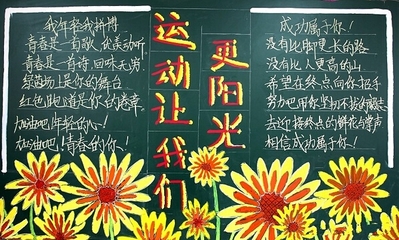 我年轻我拼搏
青春是一首歌,优美动听
青春是一首诗,回味无穷
绿茵场上是你的舞台
红色跑道是你的
加油吧!年轻的心!
加油吧!青春的你!
运动让我们
更阳光
成功属于你!
没有比脚更长的路
没有比人更高的山
希望在终点向你招手
努力吧用你坚韧不拔的
去迎接终点的鲜花与掌声
相信成功属于你!